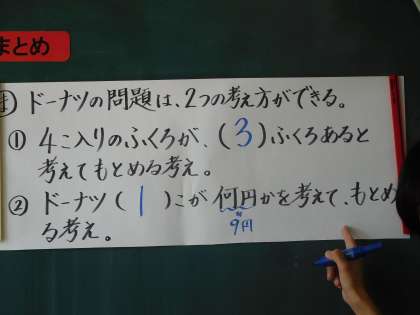 まとめ
ま ドーナツの問題は、2つの考え方ができる。
① 4こ入りのふくろが、(3)ふくろあると
考えてもとめる考え。
② ドーナツ(1)こが何円かを考えて、もとめ
る考え。
9円